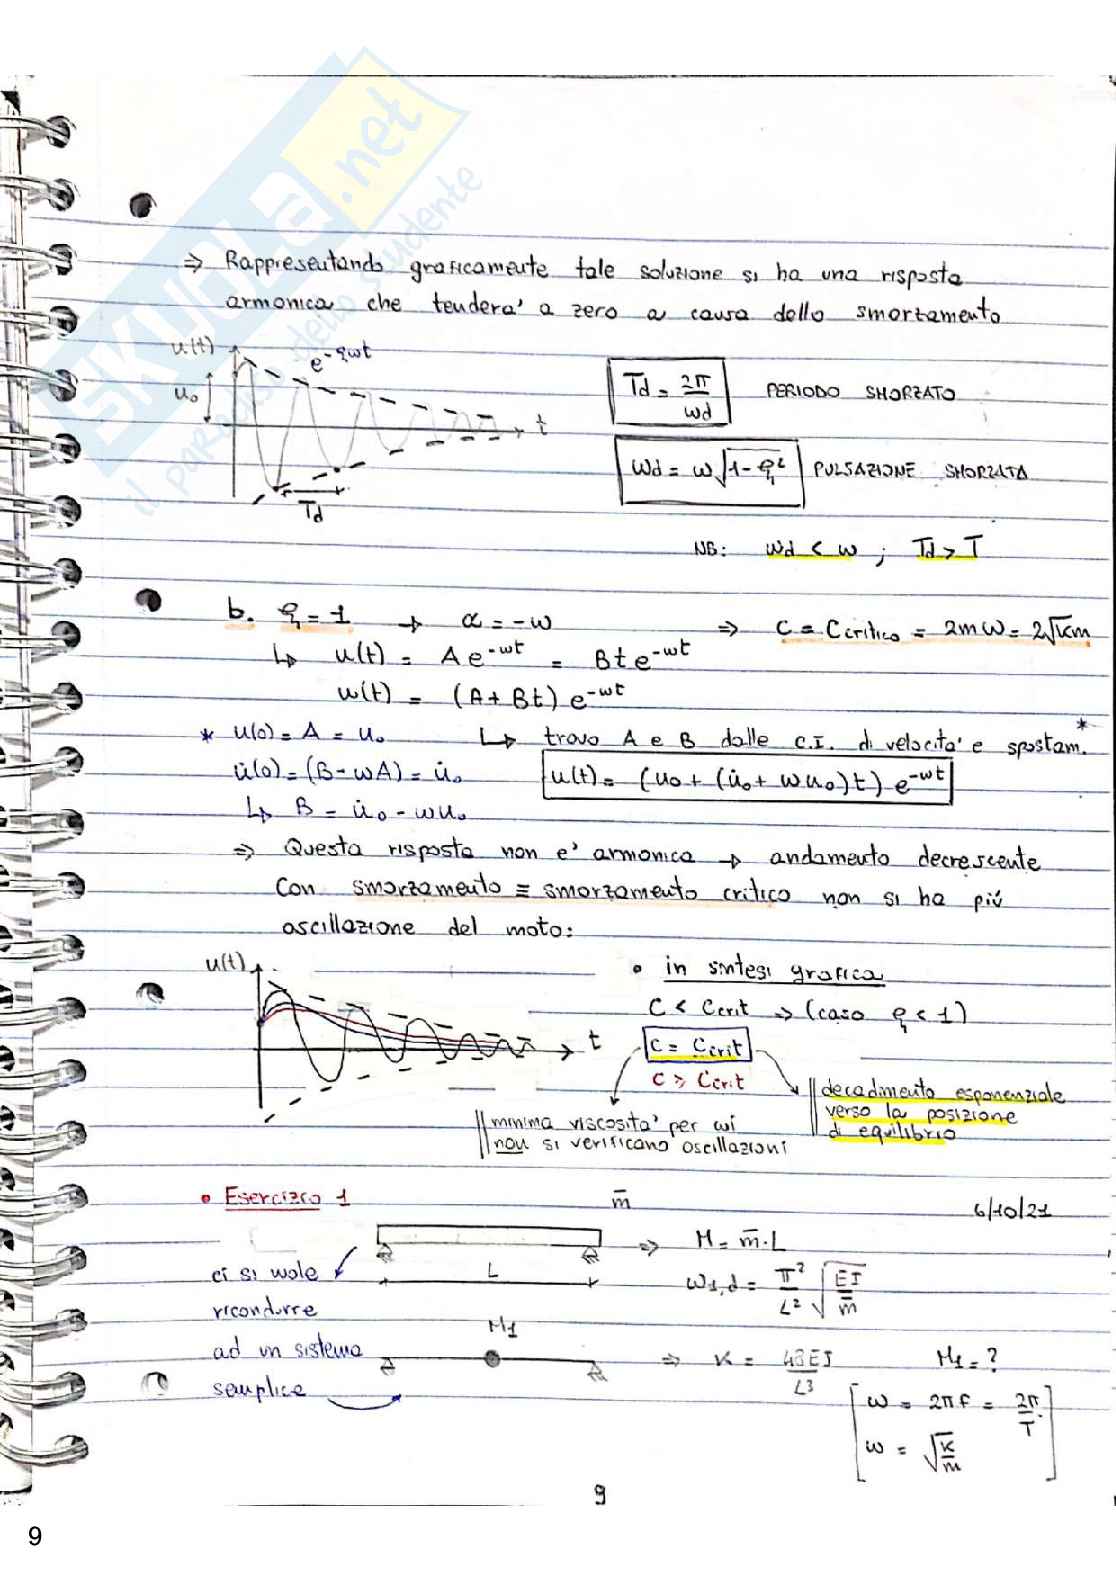 SKUOLA.net
il paradiso dello studente
⇒ Rappresentando graficamente tale soluzione si ha una risposta
armonica che tendera' a zero a causa dello smortamento
u(t)
e^-ξωt
u₀
t
Td
Td = 2π/ωd PERIODO SMORZATO
ωd = ω√(1-ξ²) PULSAZIONE SMORZATA
NB: ωd < ω ; Td > T
b. ξ = 1 → α = -ω ⇒ C = Ccritico = 2mω = 2√km
↳ u(t) = A e^-ωt = Bt e^-ωt
u(t) = (A + Bt) e^-ωt
* u(0) = A = u₀ ↳ trovo A e B dalle C.I. di velocita' e spostam.*
u̇(0) = (B - ωA) = u̇₀
u(t) = (u₀ + (u̇₀ + ωu₀)t) e^-ωt
↳ B = u̇₀ - ωu₀
⇒ Questa risposta non e' armonica → andamento decrescente
Con smorzamento ≡ smorzamento critico non si ha piú
oscillazione del moto:
u(t)
t
• in sintesi grafica
C < Ccrit → (caso ξ < 1)
C = Ccrit
C > Ccrit
minima viscosita' per cui
non si verificano oscillazioni
decadimento esponenziale
verso la posizione
di equilibrio
• Esercizio 1
m̄
6/10/21
⇒ M = m̄·L
ci si vuole
ricondurre
ad un sistema
semplice
L
ω1,d = π²/L² √(EI/m̄)
M1
⇒ K = 48EJ/L3 M1 = ?
ω = 2πf = 2π/T
ω = √(K/m)
9
9